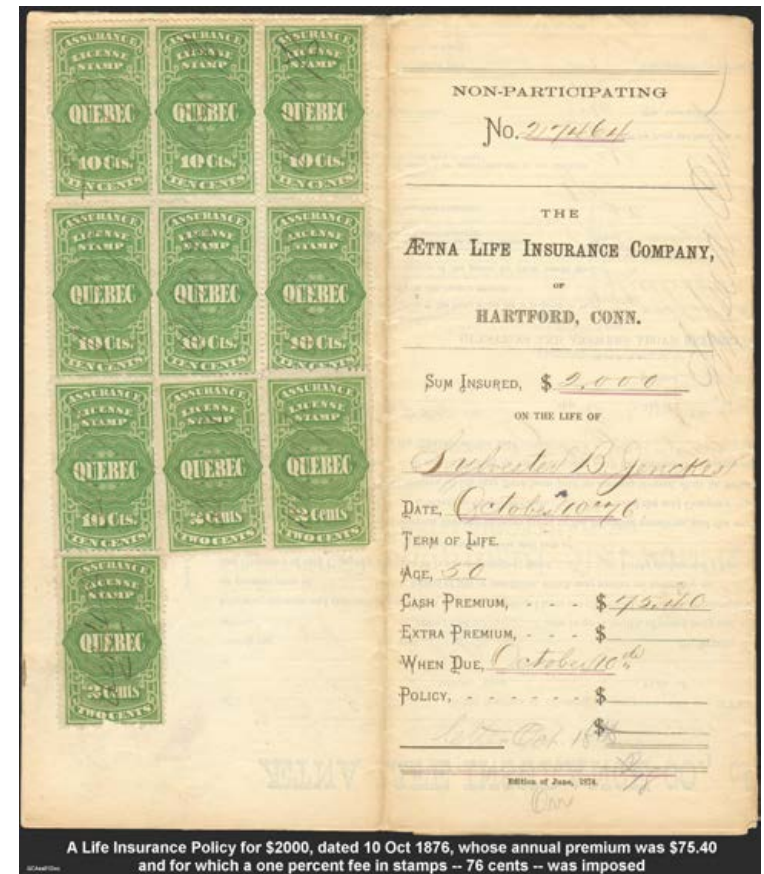 ASSURANCE LICENSE STAMP QUEBEC 10 Cts. TEN CENTS
ASSURANCE LICENSE STAMP QUEBEC 10 Cts. TEN CENTS
ASSURANCE LICENSE STAMP QUEBEC 10 Cts. TEN CENTS
ASSURANCE LICENSE STAMP QUEBEC 10 Cts. TEN CENTS
ASSURANCE LICENSE STAMP QUEBEC 10 Cts. TEN CENTS
ASSURANCE LICENSE STAMP QUEBEC 10 Cts. TEN CENTS
ASSURANCE LICENSE STAMP QUEBEC 10 Cts. TEN CENTS
ASSURANCE LICENSE STAMP QUEBEC 2 Cents TWO CENTS
ASSURANCE LICENSE STAMP QUEBEC 2 Cents TWO CENTS
ASSURANCE LICENSE STAMP QUEBEC 2 Cents TWO CENTS
NON-PARTICIPATING
No. 27464
THE
ÆTNA LIFE INSURANCE COMPANY,
OF
HARTFORD, CONN.
SUM INSURED, $ 2,000
ON THE LIFE OF
Sylvester B. Jenckes
DATE, October 10th 76
TERM OF LIFE.
AGE, 50
CASH PREMIUM, - - - $ 75.40
EXTRA PREMIUM, - - - $
WHEN DUE, October 10th
POLICY, - - - - - - $
$
Edition of June, 1874.
A Life Insurance Policy for $2000, dated 10 Oct 1876, whose annual premium was $75.40
and for which a one percent fee in stamps -- 76 cents -- was imposed